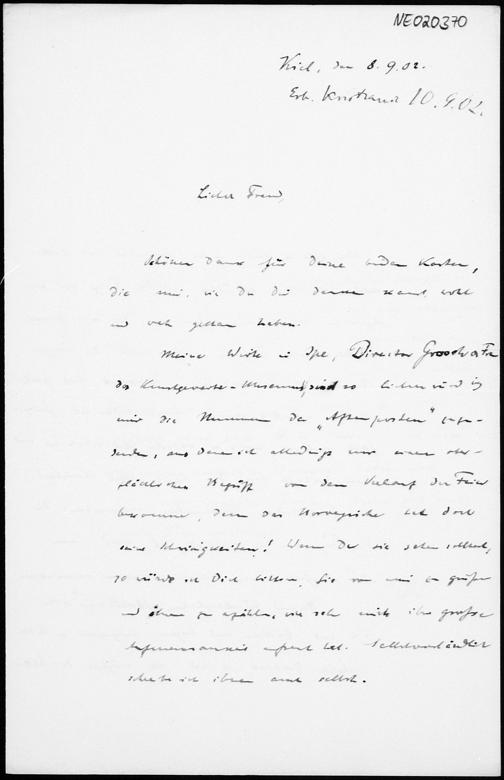 NE020370
Kiel, den 8.9.02.
Erh. Kristiania 10.9.02.
Lieber Freund,
Schönen Dank für Deine beiden Karten,
die mir, wie Du Dir denken kannst, wohl
und weh gethan haben.
Meine Wirte in Director Grosch &
des Kunstgewerbe-Museums, sind so liebenswürdig
mir die Nummern der „Aftenposten" zuge-
sendet, aus denen ich allerdings nur einen ober-
flächlichen Begriff von dem Verlauf der Feier
bekomme, denn das Norwegische hat doch
seine Schwierigkeiten! Wenn Du sie sehen solltest,
so würde ich Dich bitten, sie von mir zu grüßen
und ihnen zu erzählen, wie sehr mich ihre große
Aufmerksamkeit erfreut hat. Selbstverständlich
schreibe ich ihnen auch selbst.